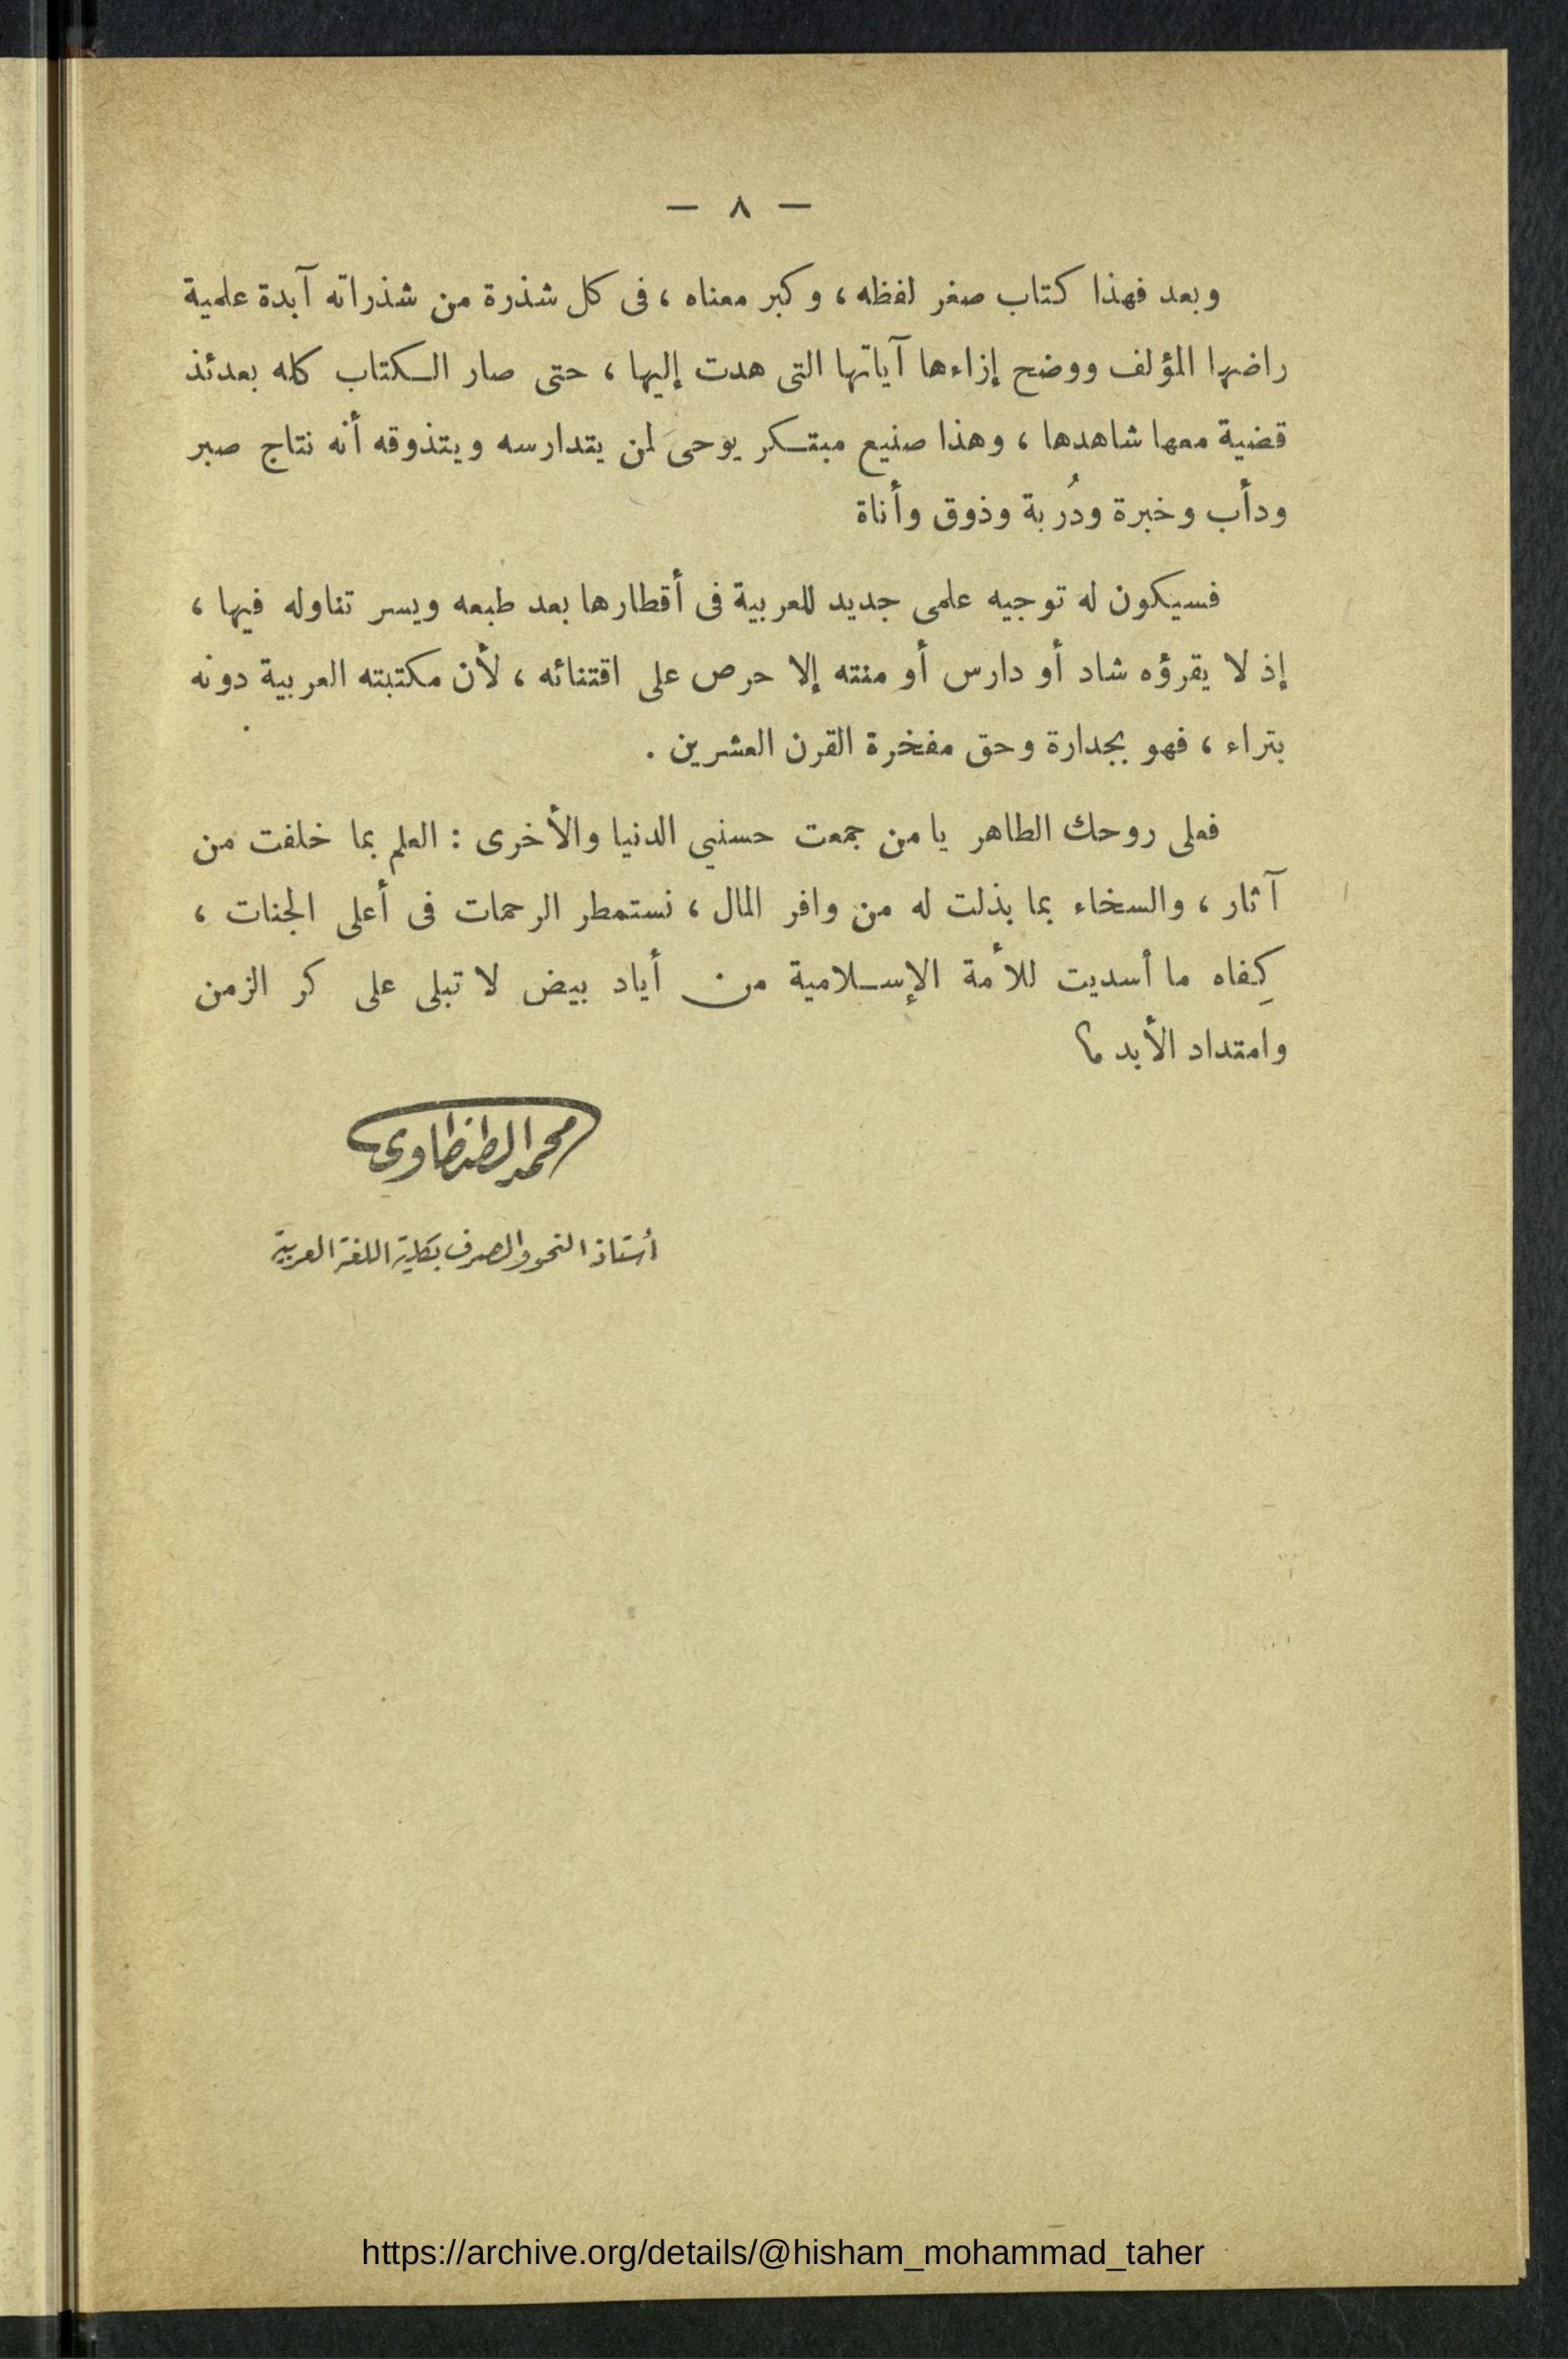 — ٨ —
وبعد فهذا كتاب صغر لفظه ، وكبر معناه ، فى كل شذرة من شذراته آبدة علمية
راضها المؤلف ووضح إزاءها آياتها التى هدت إليها ، حتى صار الكتاب كله بعدئذ
قضية معها شاهدها ، وهذا صنيع مبتكر يوحى لمن يتدارسه ويتذوقه أنه نتاج صبر
ودأب وخبرة ودُربة وذوق وأناة
فسيكون له توجيه علمى جديد للعربية فى أقطارها بعد طبعه ويسر تناوله فيها ،
إذ لا يقرؤه شاد أو دارس أو منته إلا حرص على اقتنائه ، لأن مكتبته العربية دونه
بتراء ، فهو بجدارة وحق مفخرة القرن العشرين .
فعلى روحك الطاهر يا من جمعت حسنيي الدنيا والأخرى : العلم بما خلفت من
آثار ، والسخاء بما بذلت له من وافر المال ، نستمطر الرحمات فى أعلى الجنات ،
كِفاه ما أسديت للأمة الإسلامية من أياد بيض لا تبلى على كر الزمن
وامتداد الأبد ؟
محمد الطنطاوى
أستاذ النحو والصرف بكلية اللغة العربية
https://archive.org/details/@hisham_mohammad_taher